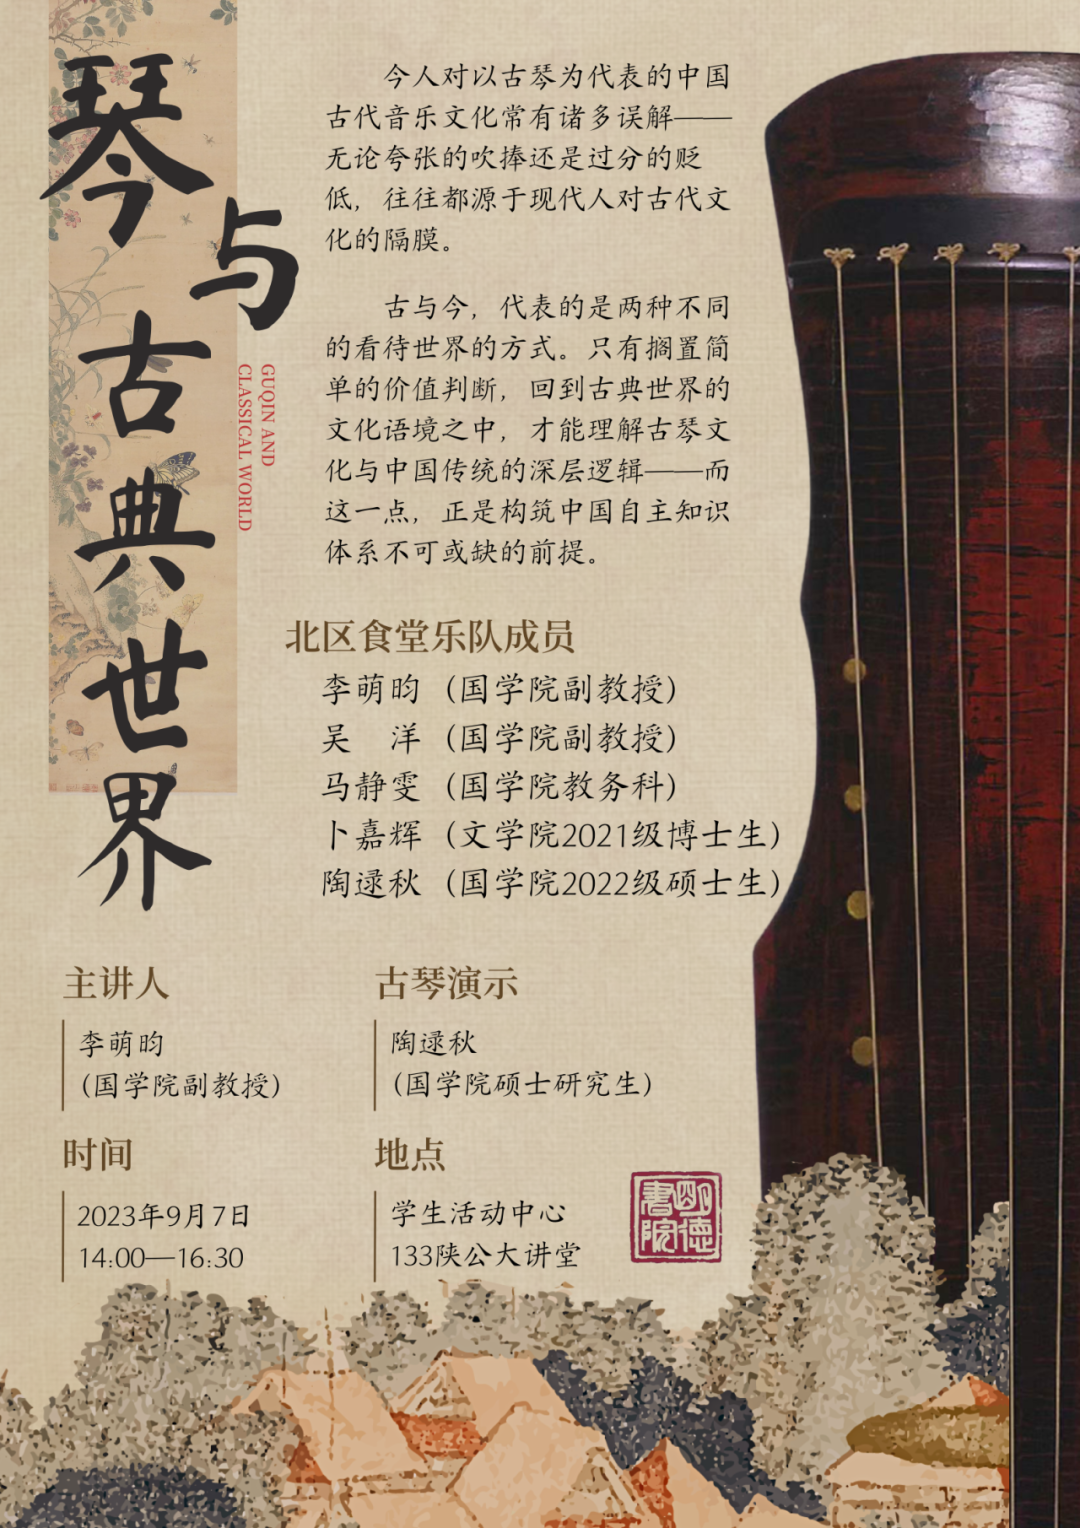 琴与古典世界
GUQIN AND
CLASSICAL WORLD
今人对以古琴为代表的中国
古代音乐文化常有诸多误解——
无论夸张的吹捧还是过分的贬
低，往往都源于现代人对古代文
化的隔膜。
古与今，代表的是两种不同
的看待世界的方式。只有搁置简
单的价值判断，回到古典世界的
文化语境之中，才能理解古琴文
化与中国传统的深层逻辑——而
这一点，正是构筑中国自主知识
体系不可或缺的前提。
北区食堂乐队成员
李萌昀（国学院副教授）
吴　洋（国学院副教授）
马静雯（国学院教务科）
卜嘉辉（文学院2021级博士生）
陶逯秋（国学院2022级硕士生）
主讲人
李萌昀
（国学院副教授）
古琴演示
陶逯秋
（国学院硕士研究生）
时间
2023年9月7日
14:00—16:30
地点
学生活动中心
133陕公大讲堂
明德書院